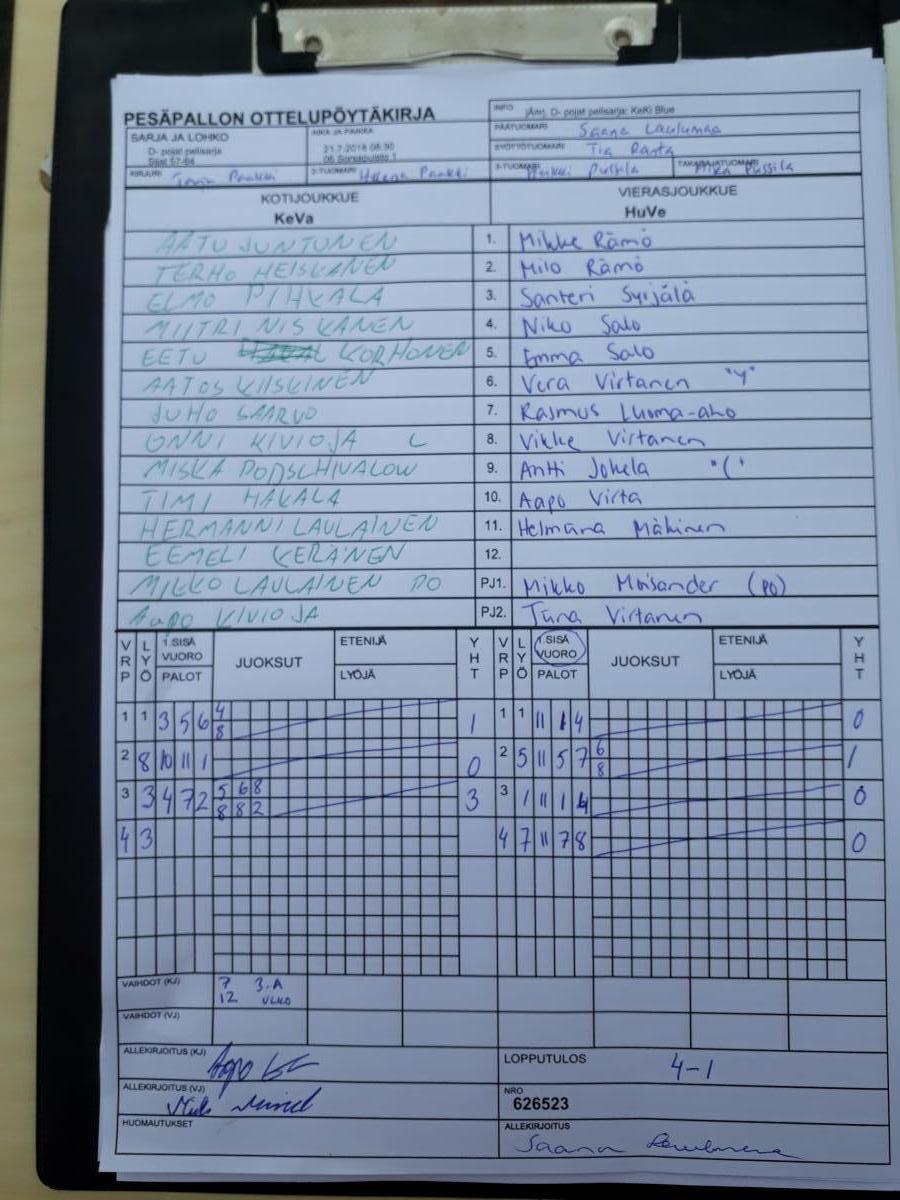 PESÄPALLON OTTELUPÖYTÄKIRJA
INFO jäns. D- pojat pelisarja: KeKi Blue
SARJA JA LOHKO
D- pojat pelisarja
Sijat 57-64
AIKA JA PAIKKA
21.7.2018 08:30
PÄÄTUOMARI Saana Laulumaa
SYÖTTÖTUOMARI Tia Ranta
KIRJURI Paakki
2-TUOMARI Helena Paakki
3-TUOMARI Heikki Pulkla
TAKARAJATUOMARI Mika Pussila
KOTIJOUKKUE
KeVa
VIERASJOUKKUE
HuVe
AATU JUNTUNEN 1. Mikke Rämö
TERHO HEISKANEN 2. Milo Rämö
ELMO PIHKALA 3. Santeri Syijälä
MIITRI NISKANEN 4. Niko Salo
EETU KORHONEN 5. Emma Salo
AATOS KIISKINEN 6. Vera Virtanen "Y"
JUHO SAARVO 7. Rasmus Luoma-aho
ONNI KIVIOJA C 8. Vikke Virtanen
MISKA PODSCHIVALOW 9. Antti Jokela "("
TIMI HAKALA 10. Aapo Virta
HERMANNI LAULAINEN 11. Helmana Mäkinen
EEMELI KERÄNEN 12.
MIKKO LAULAINEN PO PJ1. Mikko Moisander (PO)
Aapo KIVIOJA PJ2. Tuna Virtanen
VRP LYÖ 1.SISÄ VUORO PALOT JUOKSUT ETENIJÄ LYÖJÄ YHT VRP LYÖ 1.SISÄ VUORO PALOT JUOKSUT ETENIJÄ LYÖJÄ YHT
1 1 3 5 6 4 8 1 1 1 11 1 4 0
2 8 10 11 1 0 2 5 11 5 7 6 8 1
3 3 4 7 2 5 6 8 8 8 2 3 3 1 11 1 4 0
4 3 4 7 11 7 8 0
VAIHDOT (KJ) 7 3.A
12 ULKO
VAIHDOT (VJ)
ALLEKIRJOITUS (KJ) Aapo
LOPPUTULOS 4-1
ALLEKIRJOITUS (VJ)
NRO
626523
HUOMAUTUKSET
ALLEKIRJOITUS
Saana